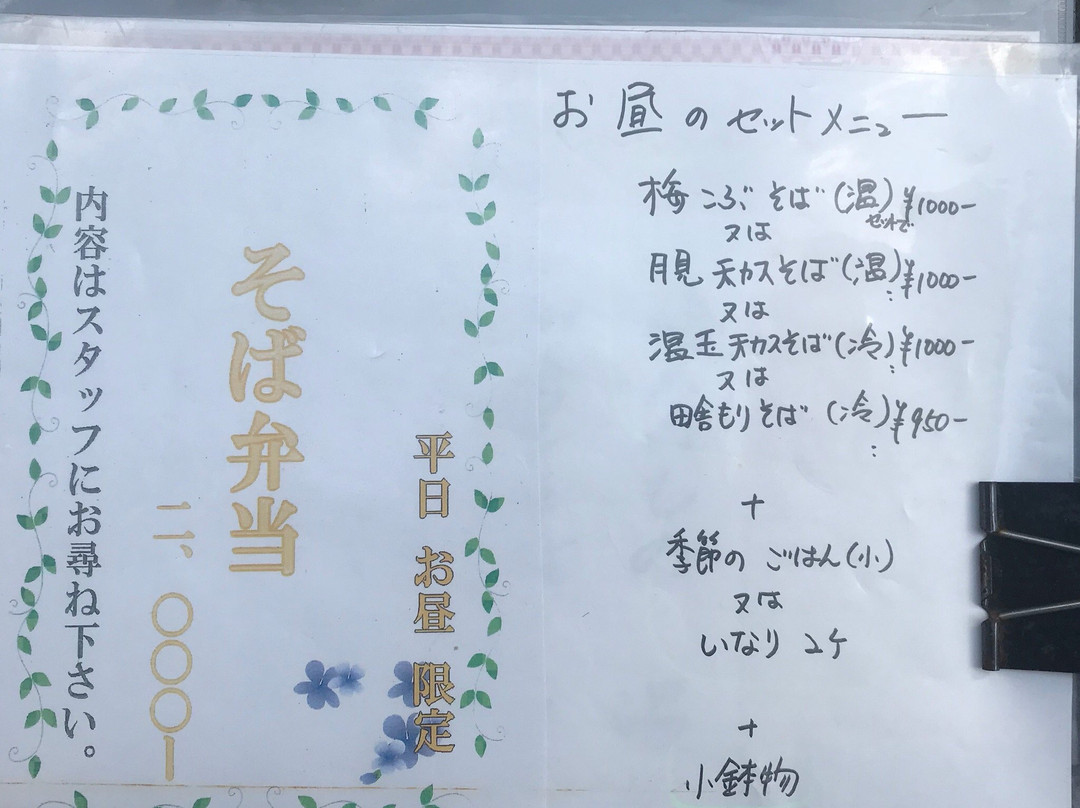 平日 お昼 限定
そば弁当
二、〇〇〇ー
内容はスタッフにお尋ね下さい。
お昼のセットメニュー
梅こぶそば(温)¥1000-
セットで
又は
月見天カスそば(温)¥1000-
又は
温玉天カスそば(冷)¥1000-
又は
田舎もりそば(冷)¥950-
+
季節のごはん(小)
又は
いなり 2ケ
+
小鉢物